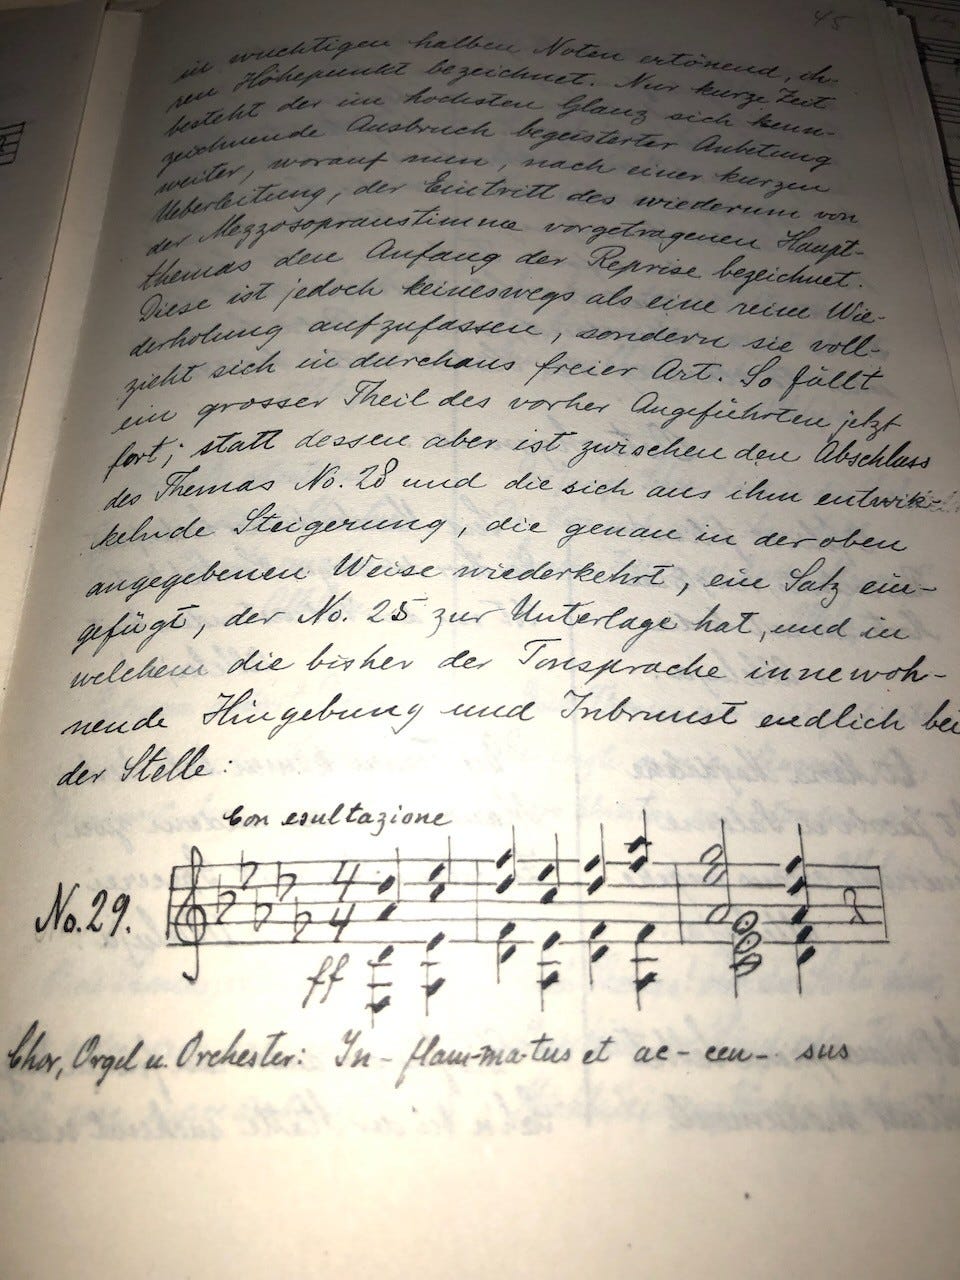 45
in wuchtigen halben Noten ertönend, ih-
ren Höhepunkt bezeichnet. Nur kurze Zeit
besteht der im höchsten Glanz sich kenn-
zeichnende Ausbruch begeisterter Anbetung
weiter, worauf nun, nach einer kurzen
Ueberleitung, der Eintritt des wiederum von
der Mezzosopranstimme vorgetragenen Haupt-
themas den Anfang der Reprise bezeichnet.
Diese ist jedoch keineswegs als eine reine Wie-
derholung aufzufassen, sondern sie voll-
zieht sich in durchaus freier Art. So fällt
ein grosser Theil des vorher Angeführten jetzt
fort; statt dessen aber ist zwischen den Abschluss
des Themas No. 28 und die sich aus ihm entwik-
kelnde Steigerung, die genau in der oben
angegebenen Weise wiederkehrt, ein Satz ein-
gefügt, der No. 25 zur Unterlage hat, und in
welchem die bisher der Tonsprache innewoh-
nende Hingebung und Inbrunst endlich bei
der Stelle:
Con esultazione
No. 29.
4
4
ff
Chor, Orgel u. Orchester: In- flam-ma-tus et ac-cen- sus